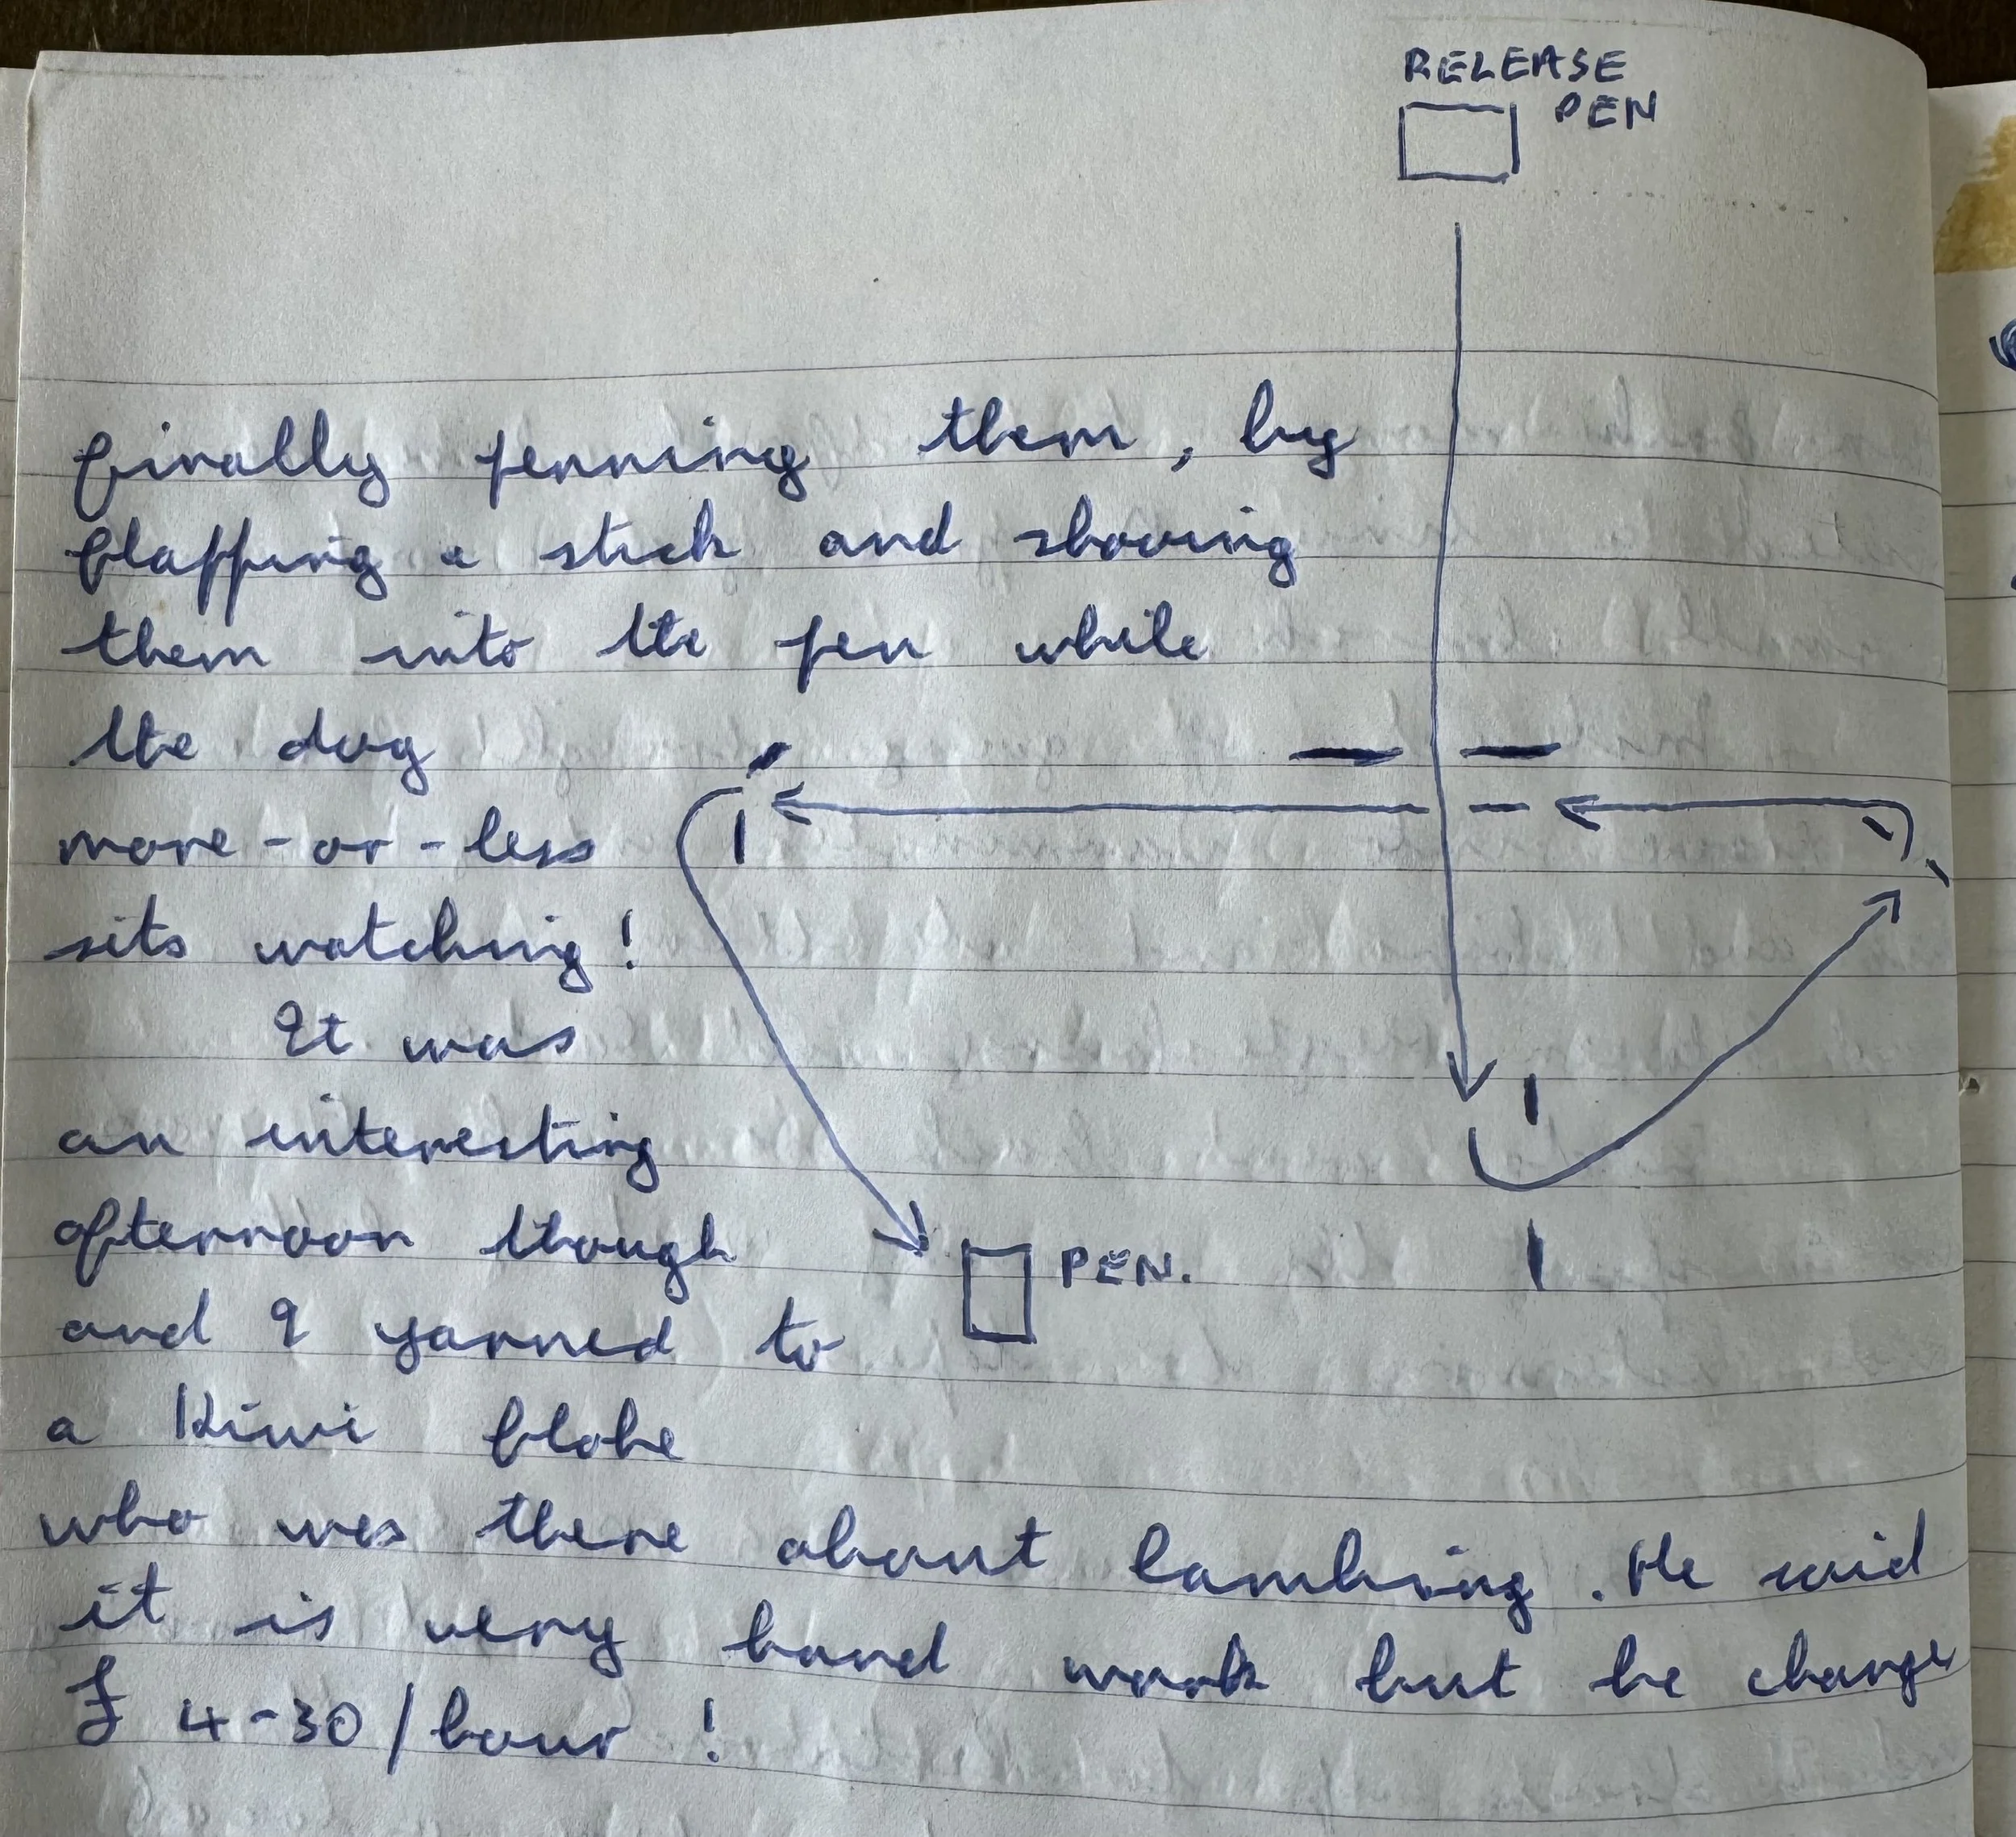 RELEASE
PEN
finally penning them, by
flapping a stick and shooing
them into the pen while
the dog
more-or-less
sits watching!
It was
an interesting
afternoon though
PEN.
and I yarned to
a Kiwi bloke
who was there about lambing. He said
it is very hard work but he charges
£ 4-30/hour!